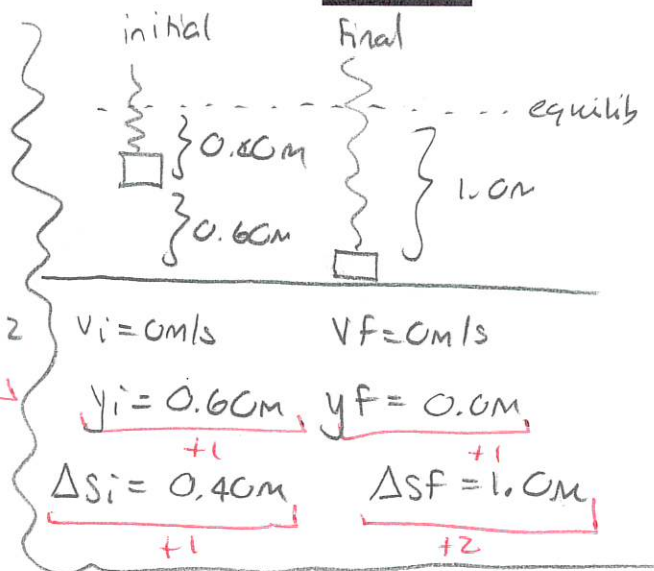 initial Final
equilib
1.0m
0.60m
2 Vi = 0m/s Vf = 0m/s
yi = 0.60m yf = 0.0m
+1 +1
Δsi = 0.40m Δsf = 1.0m
+1 +2